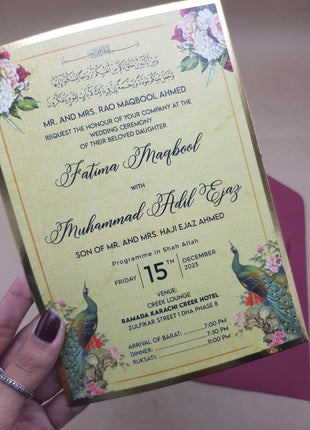 MR. AND MRS. RAO MAQBOOL AHMED
REQUEST THE HONOUR OF YOUR COMPANY AT THE
WEDDING CEREMONY
OF THEIR BELOVED DAUGHTER
Fatima Maqbool
WITH
Muhammad Adil Ejaz
SON OF MR. AND MRS. HAJI EJAZ AHMED
Programme in Shah Allah
FRIDAY 15TH DECEMBER 2023
VENUE:
CREEK LOUNGE
RAMADA KARACHI CREEK HOTEL
ZULFIKAR STREET 1 DHA PHASE 8
ARRIVAL OF BARAT: 7:00 PM
DINNER: 7:30 PM
RUKSATI: 11:00 PM